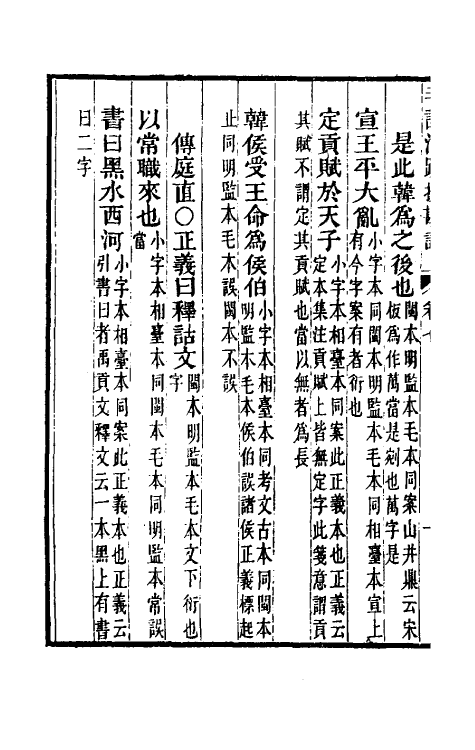 是此韓爲之後也 閩本明監本毛本同案山井鼎云宋
板爲作萬當是剜也萬字是
宣王平大亂 小字本同閩本明監本毛本同相臺本宣上
有今字案有者衍也
定貢賦於天子 小字本相臺本同案此正義本也正義云
定本集注貢賦上皆無定字此箋意謂貢
其賦不謂定其貢賦也當以無者爲長
韓侯受王命爲侯伯 小字本相臺本同考文古本同閩本
明監本毛本侯伯誤諸侯正義標起
止同明監本毛本誤閩本不誤
傳庭直〇正義曰釋詁文 閩本明監本毛本文下衍也
字
以常職來也 小字本相臺本同閩本毛本同明監本常誤
當
書曰黑水西河 小字本相臺本同案此正義本也正義云
引書曰者禹貢文釋文云一本黑上有書
曰二字